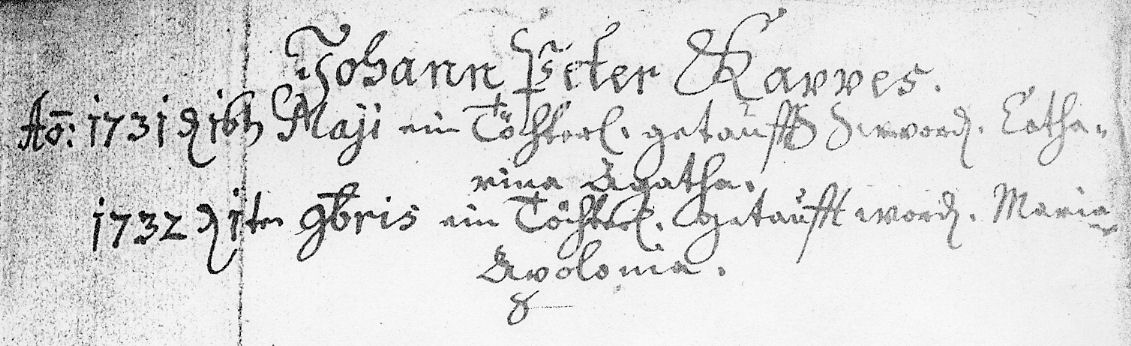 Johann Peter Karves.
Aõ: 1731 d 16ts Maji ein Töchterl. getaufft word. Catha-
rina Agatha.
1732 d 1ten 9bris ein Töchterl. getaufft word. Maria
Apolonia.